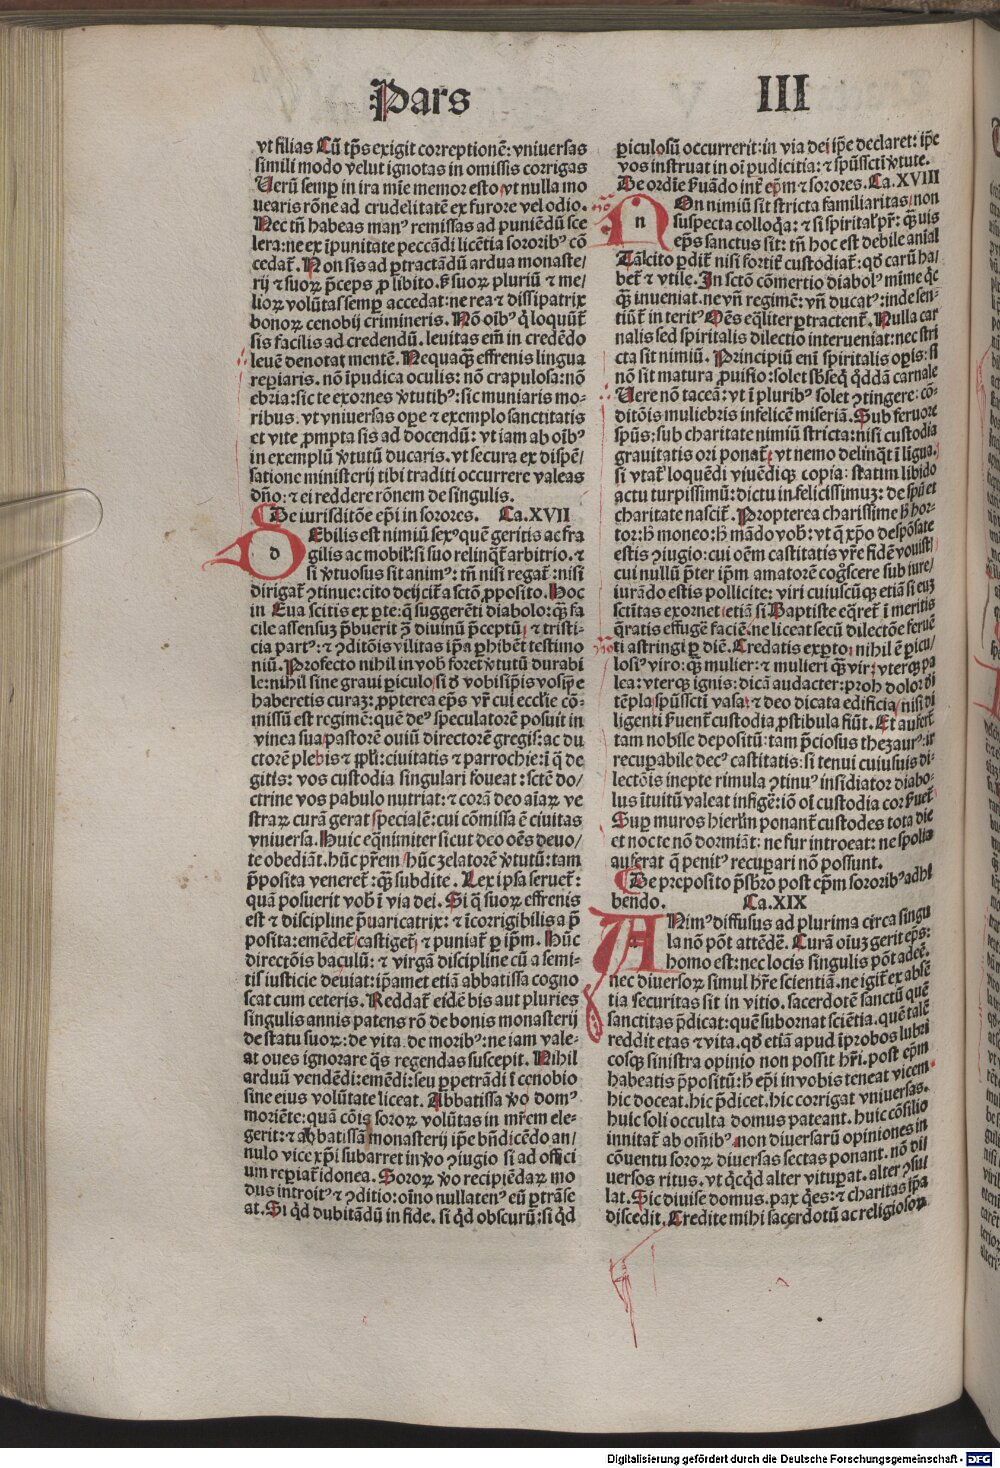 Pars III
vt filias Cū tp̄s exigit correptionē: vniuersas
simili modo velut ignotas in omissis corrigas
Uerū semꝑ in ira mīe memor esto, vt nulla mo
uearis rōne ad crudelitatē ex furore vel odio.
Nec tn̄ habeas manꝰ remissas ad puniēdū sce
lera: ne ex īpunitate peccādi licētia sororibꝰ cō
cedat᷑. Non sis ad ꝑtractādū ardua monaste/
rij ⁊ suoꝝ p̄ceps ꝓ libito. ꝭ suoꝝ pluriū ⁊ me/
lioꝝ volūtas semꝑ accedat: ne rea ⁊ dissipatrix
bonoꝝ cenobij crimineris. Nō oībꝰ q̄ loquūt᷑
sis facilis ad credendū. leuitas em̄ in credēdo
leuē denotat mentē. Nequaꝙ̄ effrenis lingua
reꝑiaris. nō īpudica oculis: nō crapulosa: nō
ebria: sic te exornes v̄tutibꝰ: sic muniaris mo-
ribus. vt vniuersas oꝑe ⁊ exemplo sanctitatis
et vite ꝓmpta sis ad docendū: vt iam ab oībꝰ
in exemplū v̄tutū ducaris. vt secura ex dispē/
satione ministerij tibi traditi occurrere valeas
dn̄o: ⁊ ei reddere rōnem de singulis.
De iurisditōe ep̄i in sorores. Ca.XVII
dEbilis est nimiū sexꝰ quē geritis ac fra
gilis ac mobil᷑: si suo relinq̄t᷑ arbitrio. ⁊
si v̄tuosus sit animꝰ: tn̄ nisi regat᷑: nisi
dirigat᷑ ꝯtinue: cito deijcit᷑ a sctō ꝓposito. Hoc
in Eua scitis ex ꝑte: q̄ suggerēti diabolo: ꝙ̄ fa
cile assensuꝫ p̄buerit ꝯ̄ diuinū p̄ceptū: ⁊ tristi-
cia partꝰ: ⁊ ꝯditōis vilitas ip̄a ꝑhibēt testimo
niū. Profecto nihil in vob̄ foret v̄tutū durabi
le: nihil sine graui ꝑiculo, si ꝺ vobisip̄is vosip̄e
haberetis curaꝫ: ꝓpterea ep̄s vr̄ cui eccl̄ie cō-
missū est regimē: quē deꝰ speculatorē posuit in
vinea sua, pastorē ouiū directorē gregis: ac du
ctorē plebis ⁊ ꝓpl̄i: ciuitatis ⁊ parrochie: ī q̄ de
gitis: vos custodia singulari foueat: sctē do/
ctrine vos pabulo nutriat: ⁊ corā deo aīaꝝ ve
straꝝ curā gerat specialē: cui cōmissa ē ciuitas
vniuersa. Huic eq̄nimiter sicut deo oēs deuo/
te obediāt. hūc pr̄em, hūc zelatorē v̄tutū: tam
p̄posita veneret᷑: ꝙ̄ subdite. Lex ipsa seruet᷑:
quā posuerit vob̄ ī via dei. Si q̄ suoꝝ effrenis
est ⁊ discipline p̄uaricatrix: ⁊ īcorrigibilis a p̄
posita: emēdet᷑, castiget᷑, ⁊ puniat᷑ ꝑ ip̄m. Hūc
directōis baculū: ⁊ virgā discipline cū a semi-
tis iusticie deuiat: ip̄amet etiā abbatissa cogno
scat cum ceteris. Reddat᷑ eidē bis aut pluries
singulis annis patens rō de bonis monasterij
de statu suoꝝ: de vita de moribꝰ: ne iam vale-
at oues ignorare q̄s regendas suscepit. Nihil
arduū vendēdi: emēdi: seu ꝑpetrādi ī cenobio
sine eius volūtate liceat. Abbatissa v̄o domꝰ
moriēte: quā cōis soroꝝ volūtas in mr̄em ele-
gerit: ⁊ abbatissā monasterij ip̄e bn̄dicēdo an/
nulo vice xp̄i subarret in v̄o ꝯiugio si ad offici
um reꝑiat᷑ idonea. Soroꝝ v̄o recipiēdaꝝ mo
dus introitꝰ ⁊ ꝯditio: oīno nullatenꝰ eū ꝑtrāse
at. Si q̄d dubitādū in fide. si q̄d obscurū: si q̄d
ꝑiculosū occurrerit: in via dei ip̄e declaret: ip̄e
vos instruat in oī pudicitia: ⁊ sp̄ūssctī v̄tute.
De ordīe ẜuādo int᷑ ep̄m ⁊ sorores. Ca.XVIII
nOn nimiū sit stricta familiaritas, non
suspecta colloq̄a: ⁊ si spirital᷑ pr̄: ꝙ̄uis
ep̄s sanctus sit: tn̄ hoc est debile anīal
Tal᷑ cito ꝑdit᷑ nisi fortit᷑ custodiat᷑: qd̄ carū ha/
bet᷑ ⁊ vtile. In sctō cōmertio diabolꝰ mīme q̄c
ꝙ̄ inueniat. ne vn̄ regimē: vn̄ ducatꝰ: inde sen-
tiūt᷑ interitꝰ Oēs eq̄liter ꝑtractent᷑. Nulla car
nalis sed spiritalis dilectio interueniat: nec stri
cta sit nimiū. Principiū enī spiritalis oꝑis: si
nō sit matura ꝓuisio: solet sb̄seq̄ q̄ddā carnale
Uere nō taceā: vt ī pluribꝰ solet ꝯtingere: cō-
ditōis muliebris infelicē miseriā. Sub feruore
sp̄ūs: sub charitate nimiū stricta: nisi custodia
grauitatis ori ponat᷑, vt nemo delinq̄t ī ligua.
si vtat᷑ loquēdi viuēdiqꝫ copia: statim libido
actu turpissimū: dictu infelicissimuꝫ: de sp̄u et
charitate nascit᷑. Propterea charissime ẜ hor-
tor: ẜ moneo: ẜ mādo vob̄: vt q̄ xp̄o despōsate
estis ꝯiugio: cui oēm castitatis vr̄e fidē vouist᷑:
cui nullū p̄ter ip̄m amatorē coḡscere sub iure/
iurādo estis pollicite: viri cuiuscūꝙ etiā si euꝫ
sctītas exornet, etiā si Baptiste eq̄ret᷑ ī meritis
q̄ratis effugē faciē. ne liceat secū dilectōe feruē
ti astringi ꝑ diē. Credatis exꝑto, nihil ē ꝑicu/
losiꝰ viro: ꝙ̄ mulier: ⁊ mulieri ꝙ̄ vir: vterqꝫ pa
lea: vterqꝫ ignis: dicā audacter: proh dolor di
tēpla spūssctī vasa: ⁊ deo dicata edificia, nisi di
ligenti ẜuent᷑ custodia, ꝓstibula fiūt. Et aufert᷑
tam nobile depositū: tam p̄ciosus thezaurꝰ: ir
recuꝑabile decꝰ castitatis: si tenui cuiusuis di-
lectōis inepte rimula ꝯtinuꝰ insidiator diabo-
lus ītuitū valeat infigē: iō oī custodia cor ẜuet᷑
Suꝑ muros hierl̄m ponant᷑ custodes tota die
et nocte nō dormiāt: ne fur introeat: ne spolia
auferat q̄ penitꝰ recuꝑari nō possunt.
De preposito p̄sb̄ro post ep̄m sororibꝰ adhi
bendo. Ca.XIX
ANimꝰ diffusus ad plurima circa singu
la nō pōt attēdē. Curā oīuꝫ gerit ep̄s:
homo est: nec locis singulis pōt adeē.
nec diuersoꝝ simul hr̄e scientiā. ne igit᷑ ex absē
tia securitas sit in vitio. sacerdotē sanctū quē
sanctitas p̄dicat: quē subornat sciētia. quē talē
reddit etas ⁊ vita. qd̄ etiā apud īprobos lubri
cosqꝫ sinistra opinio non possit hr̄i. post ep̄m
habeatis p̄positū: ẜ ep̄i in vobis teneat vicem
hic doceat. hic p̄dicet. hic corrigat vniuersas.
huic soli occulta domus pateant. huic cōsilio
innitat᷑ ab om̄ibꝰ. non diuersarū opiniones in
cōuentu soroꝝ diuersas sectas ponant. nō di
uersos ritus. vt q̄cq̄d alter vituꝑat. alter ꝯsul
lat. Sic diuise domus. pax q̄es: ⁊ charitas ip̄a
discedit. Credite mihi sacerdotū ac religiosoꝝ
Digitalisierung gefördert durch die Deutsche Forschungsgemeinschaft - DFG